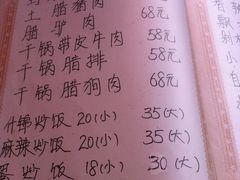 土腊猪肉 68元
腊驴肉
干锅带皮牛肉 68元
干锅腊排 58元
干锅腊狗肉 58元
68元
什锦炒饭 20(小) 35(大)
麻辣炒饭 20(小) 35(大)
蛋炒饭 18(小) 30(大)